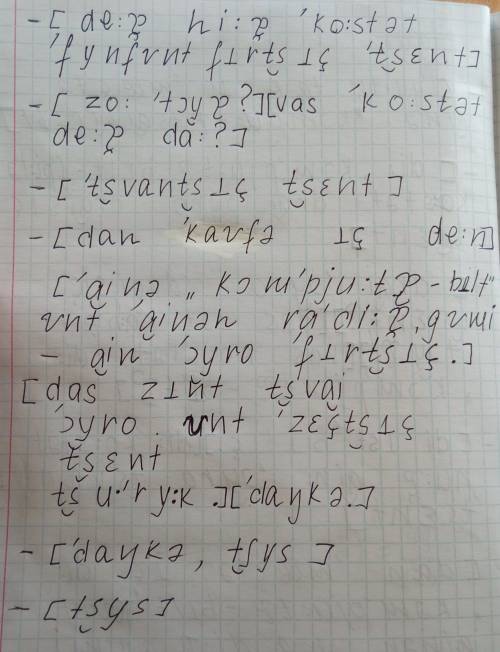 - [ de:ɐ̯ hi:ɐ̯ 'ko:stət
'fʏnfʊnt fɪrt͜sɪç 't͜sɛnt]
- [ zo: 'tɔyɐ?][vas 'ko:stət
de:ɐ̯ da:?]
- ['t͜svant͜sɪç t͜sɛnt]
- [dan 'kavfə ɪç de:n]
['ainə „kɔm'pju:tɐ - bɪlt“
ʊnt 'ainən ra'di:ɐ̯'gʊmi
- ain 'ɔyro 'fɪrt͜sɪç.]
[das zɪnt t͜svai
'ɔyro ʊnt 'zɛçt͜sɪç
t͜sɛnt
t͜su'ry:k.]['daŋkə.]
- ['daŋkə, tʃys]
- [tʃys]